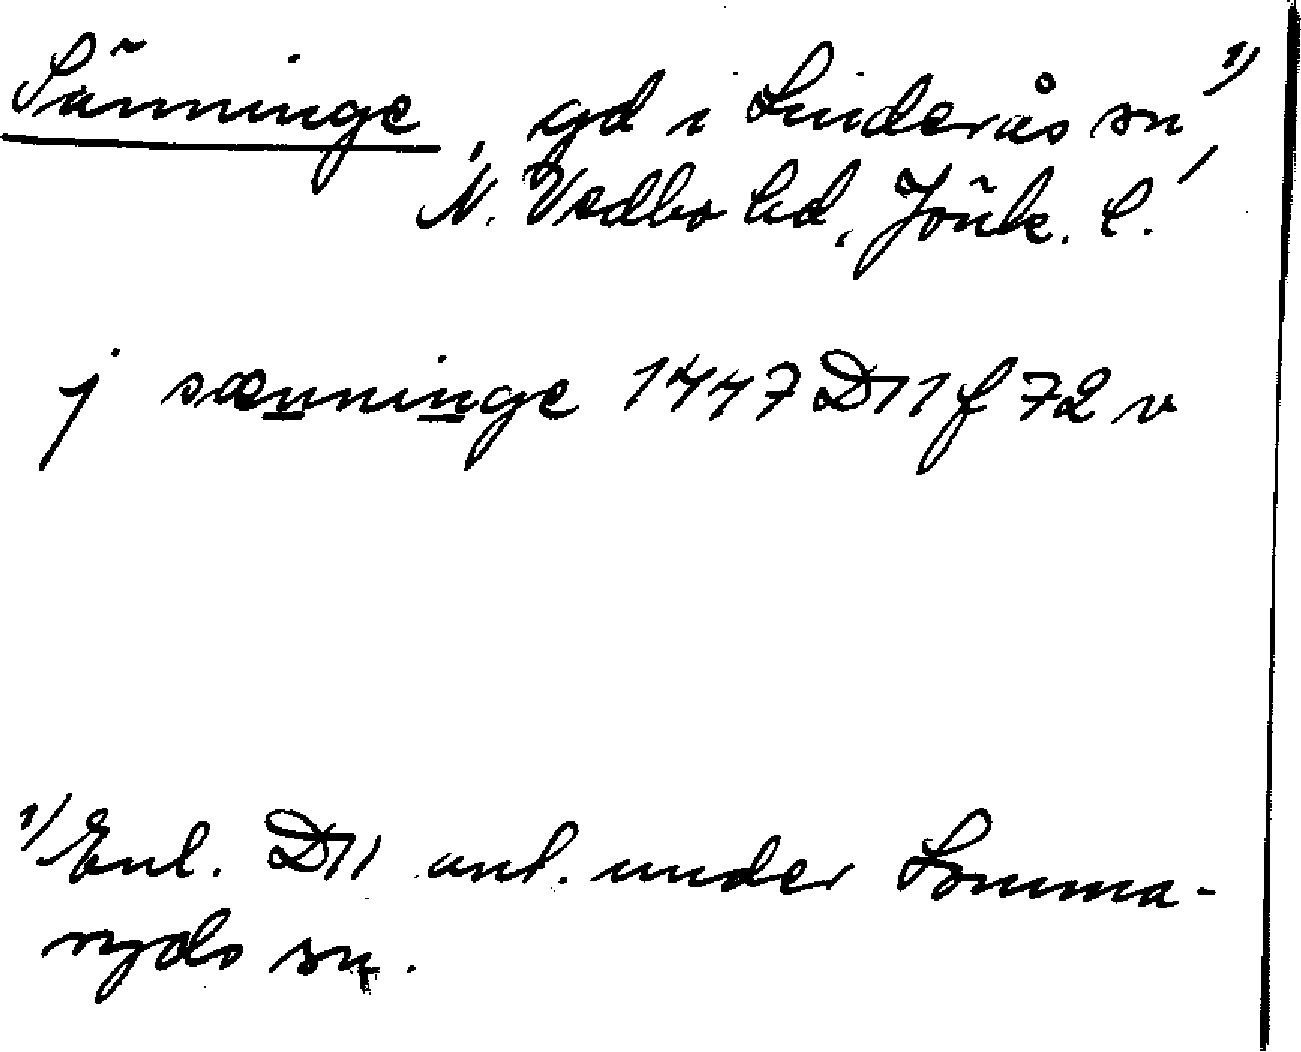 Sänninge, gd i Linderås sn 1),
N. Vedbo hd, Jönk. l.
j sænninge 1447 D11 f 72 v
1) Enl. D11 ant. under Somma-
ryds sn.